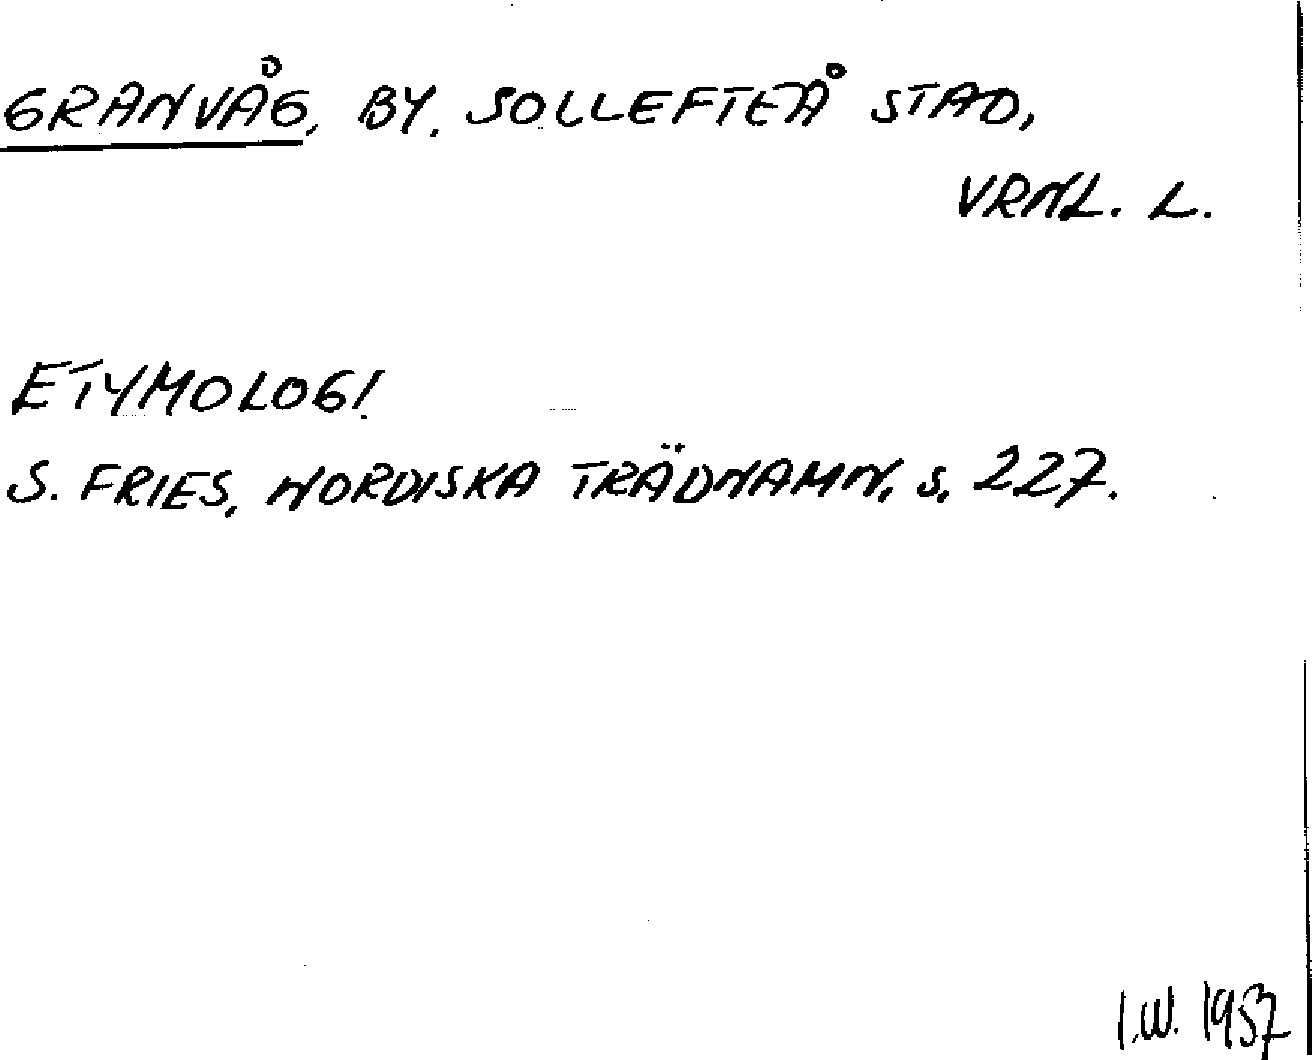 GRANVÅG, BY, SOLLEFTEÅ STAD,
VRNL. L.
ETYMOLOGI
S. FRIES, NORDISKA TRÄDNAMN, s. 227.
I.W. 1957